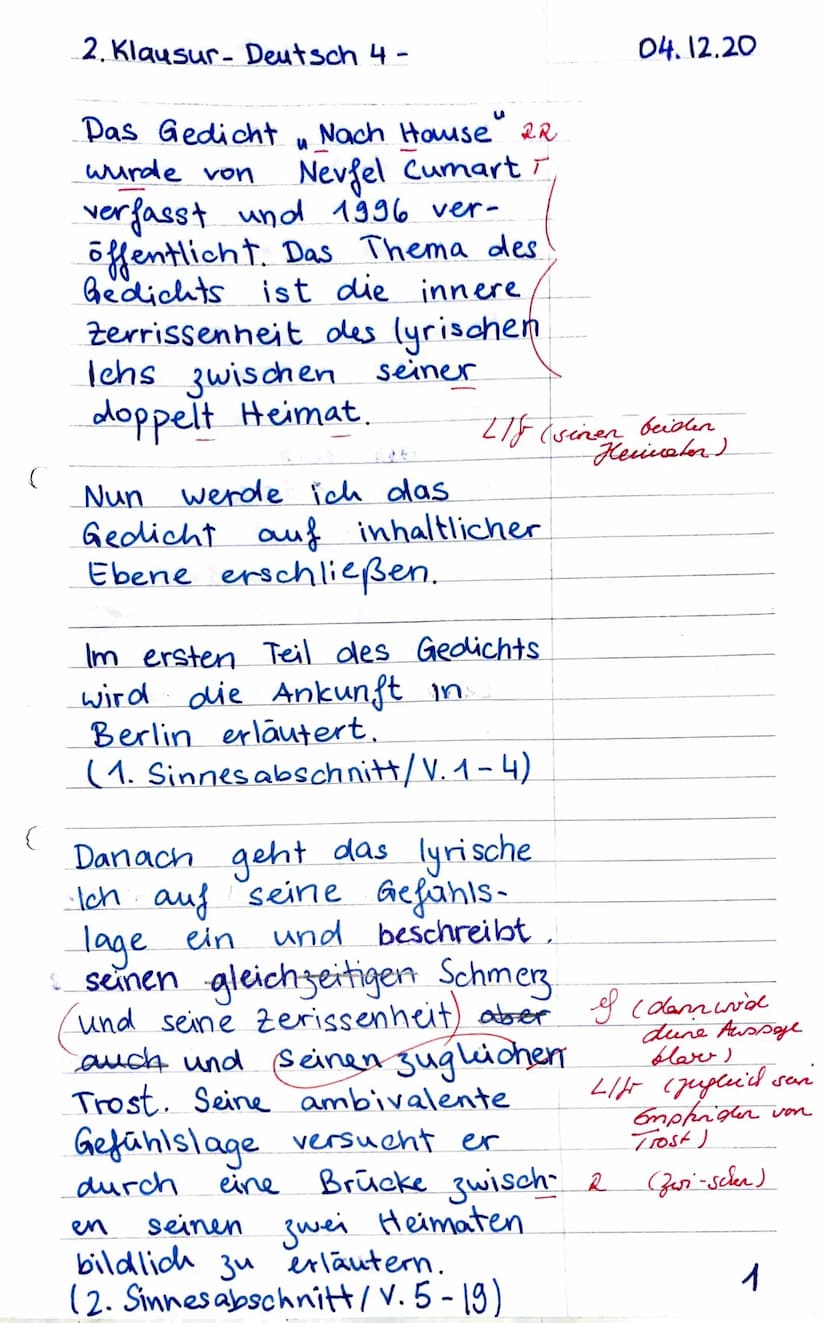 2. Klausur - Deutsch 4 -
04.12.20
Das Gedicht „Nach Hause" 2R
wurde von Nevfel Cumart T
verfasst und 1996 ver-
öffentlicht. Das Thema des
Gedichts ist die innere
Zerrissenheit des lyrischen
Ichs zwischen seiner
doppelt Heimat.
(seinen beiden
Heimaten)
Nun werde ich das
Gedicht auf inhaltlicher
Ebene erschließen.
Im ersten Teil des Gedichts
wird die Ankunft in
Berlin erläutert.
(1. Sinnesabschnitt/V. 1-4)
Danach geht das lyrische
Ich auf seine Gefühls-
lage ein und beschreibt
seinen gleichzeitigen Schmerz
(und seine Zerissenheit) aber
(dann wird
deine Aussage
klarer)
auch und seinen zugleichen
Trost. Seine ambivalente
(zugleich sein
Empfinden von
Trost)
Gefühlslage versucht er
durch eine Brücke zwisch- R (zwi-schen)
en seinen zwei Heimaten
bildlich zu erläutern.
(2. Sinnesabschnitt/V. 5-19)
1